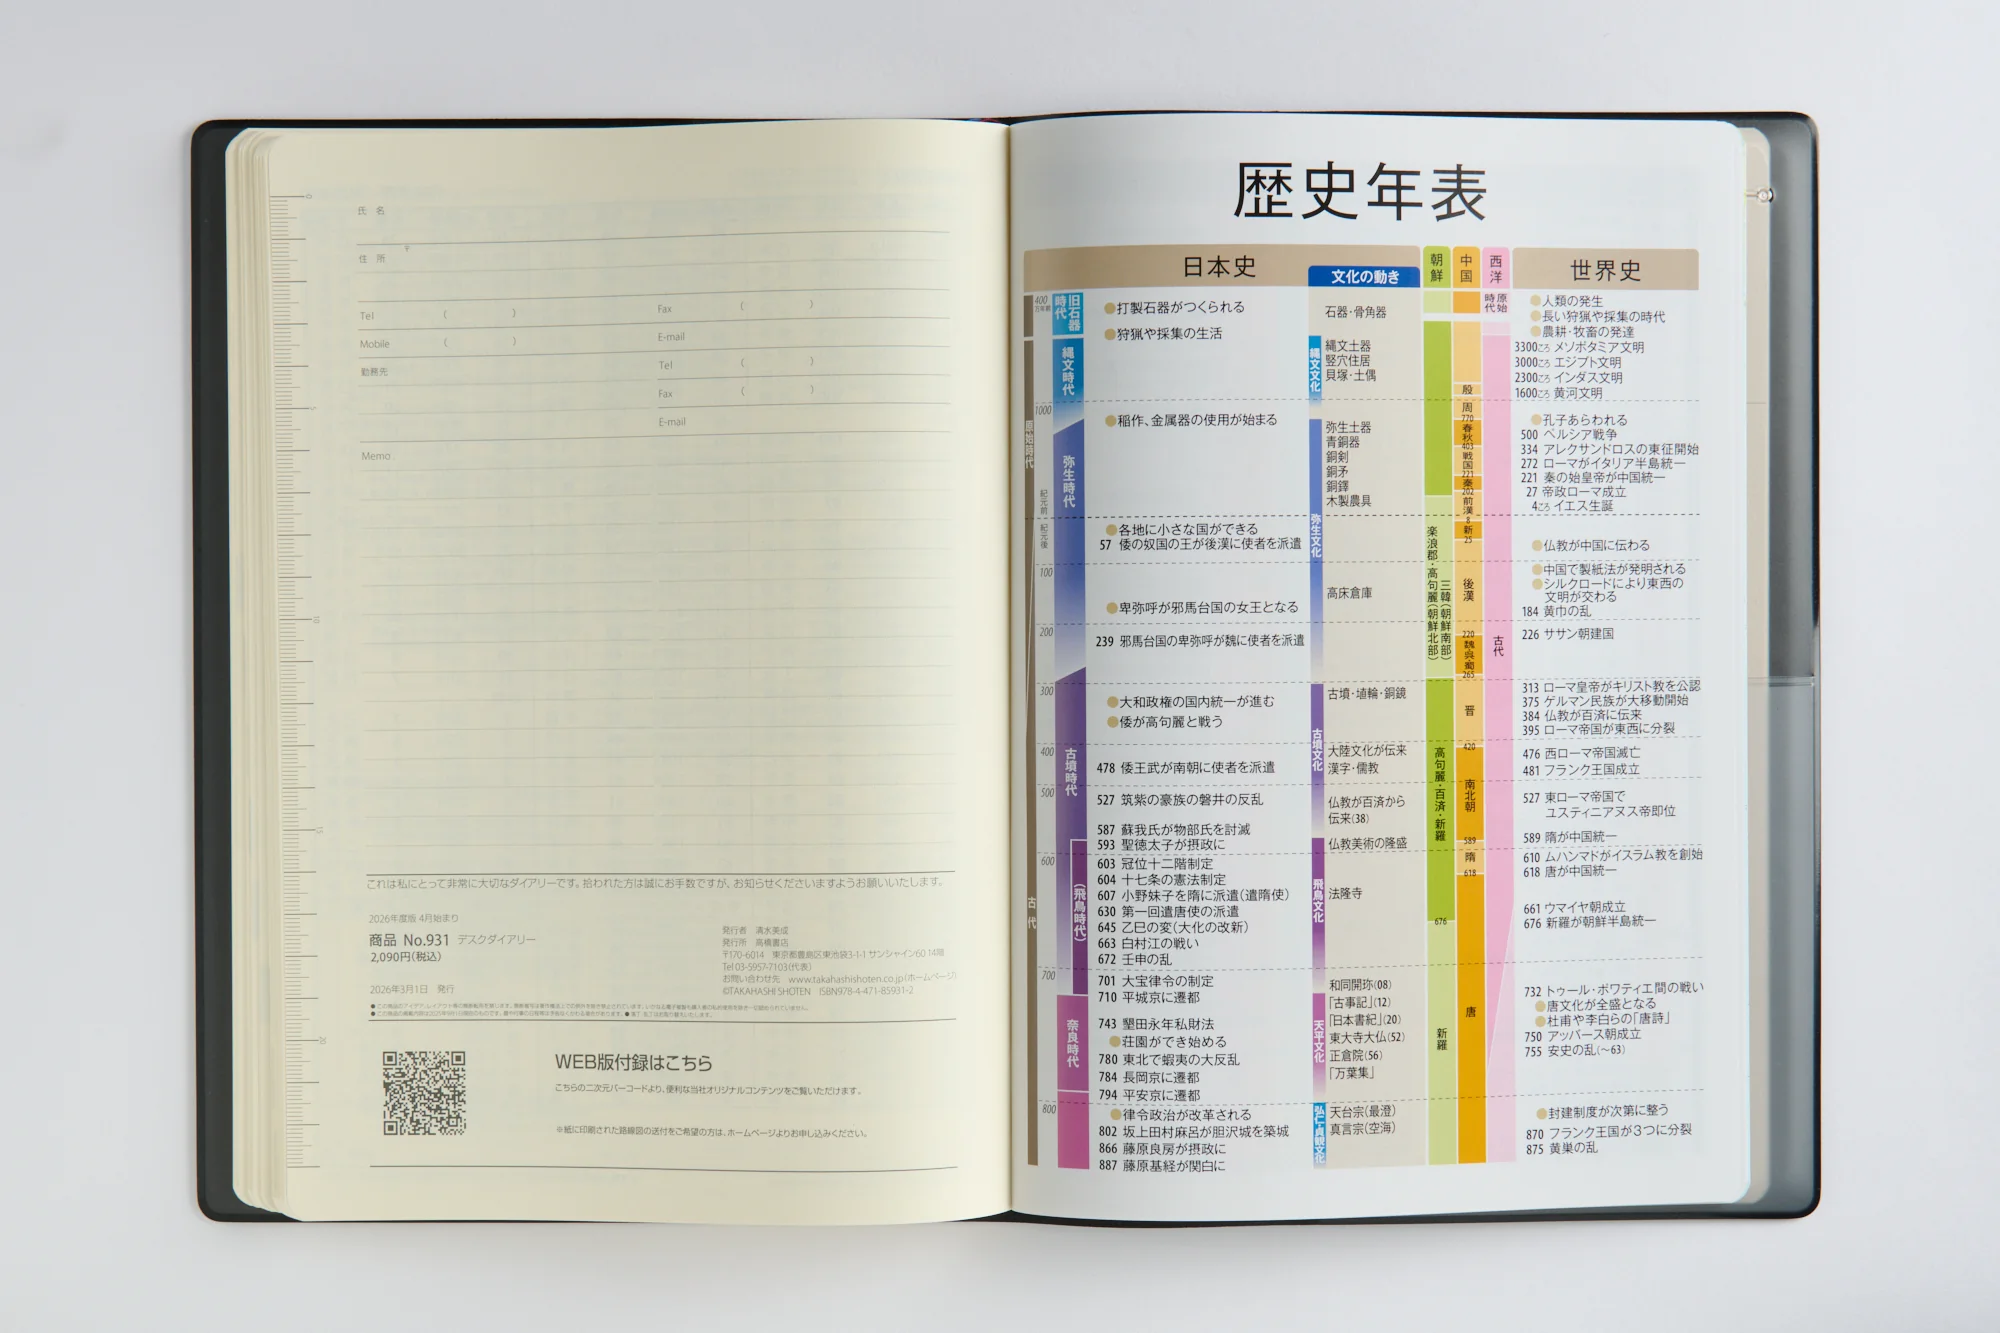 氏 名
〒
住 所
Tel ( )
Fax ( )
Mobile ( )
E-mail
勤務先
Tel ( )
Fax ( )
E-mail
Memo
0
5
10
15
20
これは私にとって非常に大切なダイアリーです。拾われた方は誠にお手数ですが、お知らせくださいますようお願いいたします。
2026年度版 4月始まり
商品 No.931 デスクダイアリー
2,090円(税込)
2026年3月1日 発行
発行者 清水美成
発行所 高橋書店
〒170-6014 東京都豊島区東池袋3-1-1 サンシャイン60 14階
Tel 03-5957-7103(代表)
お問い合わせ先 www.takahashishoten.co.jp(ホームページ)
©TAKAHASHI SHOTEN ISBN978-4-471-85931-2
WEB版付録はこちら
こちらの二次元バーコードより、便利な当社オリジナルコンテンツをご覧いただけます。
※紙に印刷された路線図の送付をご希望の方は、ホームページよりお申し込みください。
歴史年表
日本史
文化の動き
朝鮮
中国
西洋
世界史
400
万年前
1000
紀元前
紀元後
100
200
300
400
500
600
700
800
原始時代
古代
旧石器時代
縄文時代
弥生時代
古墳時代
(飛鳥時代)
奈良時代
●打製石器がつくられる
●狩猟や採集の生活
●稲作、金属器の使用が始まる
●各地に小さな国ができる
57 倭の奴国の王が後漢に使者を派遣
●卑弥呼が邪馬台国の女王となる
239 邪馬台国の卑弥呼が魏に使者を派遣
●大和政権の国内統一が進む
●倭が高句麗と戦う
478 倭王武が南朝に使者を派遣
527 筑紫の豪族の磐井の反乱
587 蘇我氏が物部氏を討滅
593 聖徳太子が摂政に
603 冠位十二階制定
604 十七条の憲法制定
607 小野妹子を隋に派遣(遣隋使)
630 第一回遣唐使の派遣
645 乙巳の変(大化の改新)
663 白村江の戦い
672 壬申の乱
701 大宝律令の制定
710 平城京に遷都
743 墾田永年私財法
●荘園ができ始める
780 東北で蝦夷の大反乱
784 長岡京に遷都
794 平安京に遷都
●律令政治が改革される
802 坂上田村麻呂が胆沢城を築城
866 藤原良房が摂政に
887 藤原基経が関白に
縄文文化
弥生文化
古墳文化
飛鳥文化
天平文化
弘仁・貞観文化
石器・骨角器
縄文土器
竪穴住居
貝塚・土偶
弥生土器
青銅器
銅剣
銅矛
銅鐸
木製農具
高床倉庫
古墳・埴輪・銅鏡
大陸文化が伝来
漢字・儒教
仏教が百済から
伝来(38)
仏教美術の隆盛
法隆寺
和同開珎(08)
「古事記」(12)
「日本書紀」(20)
東大寺大仏(52)
正倉院(56)
「万葉集」
天台宗(最澄)
真言宗(空海)
楽浪郡・高句麗(朝鮮北部)
三韓(朝鮮南部)
高句麗・百済・新羅
676
新羅
殷
周
770
春秋
403
戦国
221
秦
202
前漢
8
新
25
後漢
220
魏呉蜀
265
晋
420
南北朝
589
隋
618
唐
原始時代
古代
●人類の発生
●長い狩猟や採集の時代
●農耕・牧畜の発達
3300ころ メソポタミア文明
3000ころ エジプト文明
2300ころ インダス文明
1600ころ 黄河文明
●孔子あらわれる
500 ペルシア戦争
334 アレクサンドロスの東征開始
272 ローマがイタリア半島統一
221 秦の始皇帝が中国統一
27 帝政ローマ成立
4ころ イエス生誕
●仏教が中国に伝わる
●中国で製紙法が発明される
●シルクロードにより東西の
文明が交わる
184 黄巾の乱
226 ササン朝建国
313 ローマ皇帝がキリスト教を公認
375 ゲルマン民族が大移動開始
384 仏教が百済に伝来
395 ローマ帝国が東西に分裂
476 西ローマ帝国滅亡
481 フランク王国成立
527 東ローマ帝国で
ユスティニアヌス帝即位
589 隋が中国統一
610 ムハンマドがイスラム教を創始
618 唐が中国統一
661 ウマイヤ朝成立
676 新羅が朝鮮半島統一
732 トゥール・ポワティエ間の戦い
●唐文化が全盛となる
●杜甫や李白らの「唐詩」
750 アッバース朝成立
755 安史の乱(～63)
●封建制度が次第に整う
870 フランク王国が3つに分裂
875 黄巣の乱